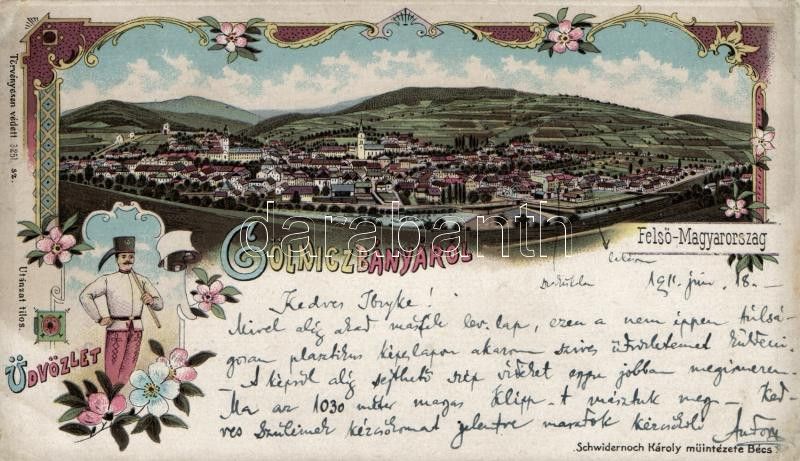 Törvényesen védett 3251 sz.
Utánzat tilos.
ÜDVÖZLET
GÖLNICZBÁNYÁRÓL
Felső-Magyarország
darabanth
.com
1911. jún. 18.-
Kedves Ibyke!
Mivel alig akad másfék lev. lap, ezen a nem éppen túlsá-
gosan plasztikus képeslapon akarom szives üdvözletemet küldeni.
A képről alig sejthető szép vidéket egyre jobban megismerem.
Ma az 1030 méter magas Klipp-t másztuk meg - Ked-
ves Szüleinek kézcsókomat jelentve maradok kézcsókoló
Schwidernoch Károly müintézete Bécs